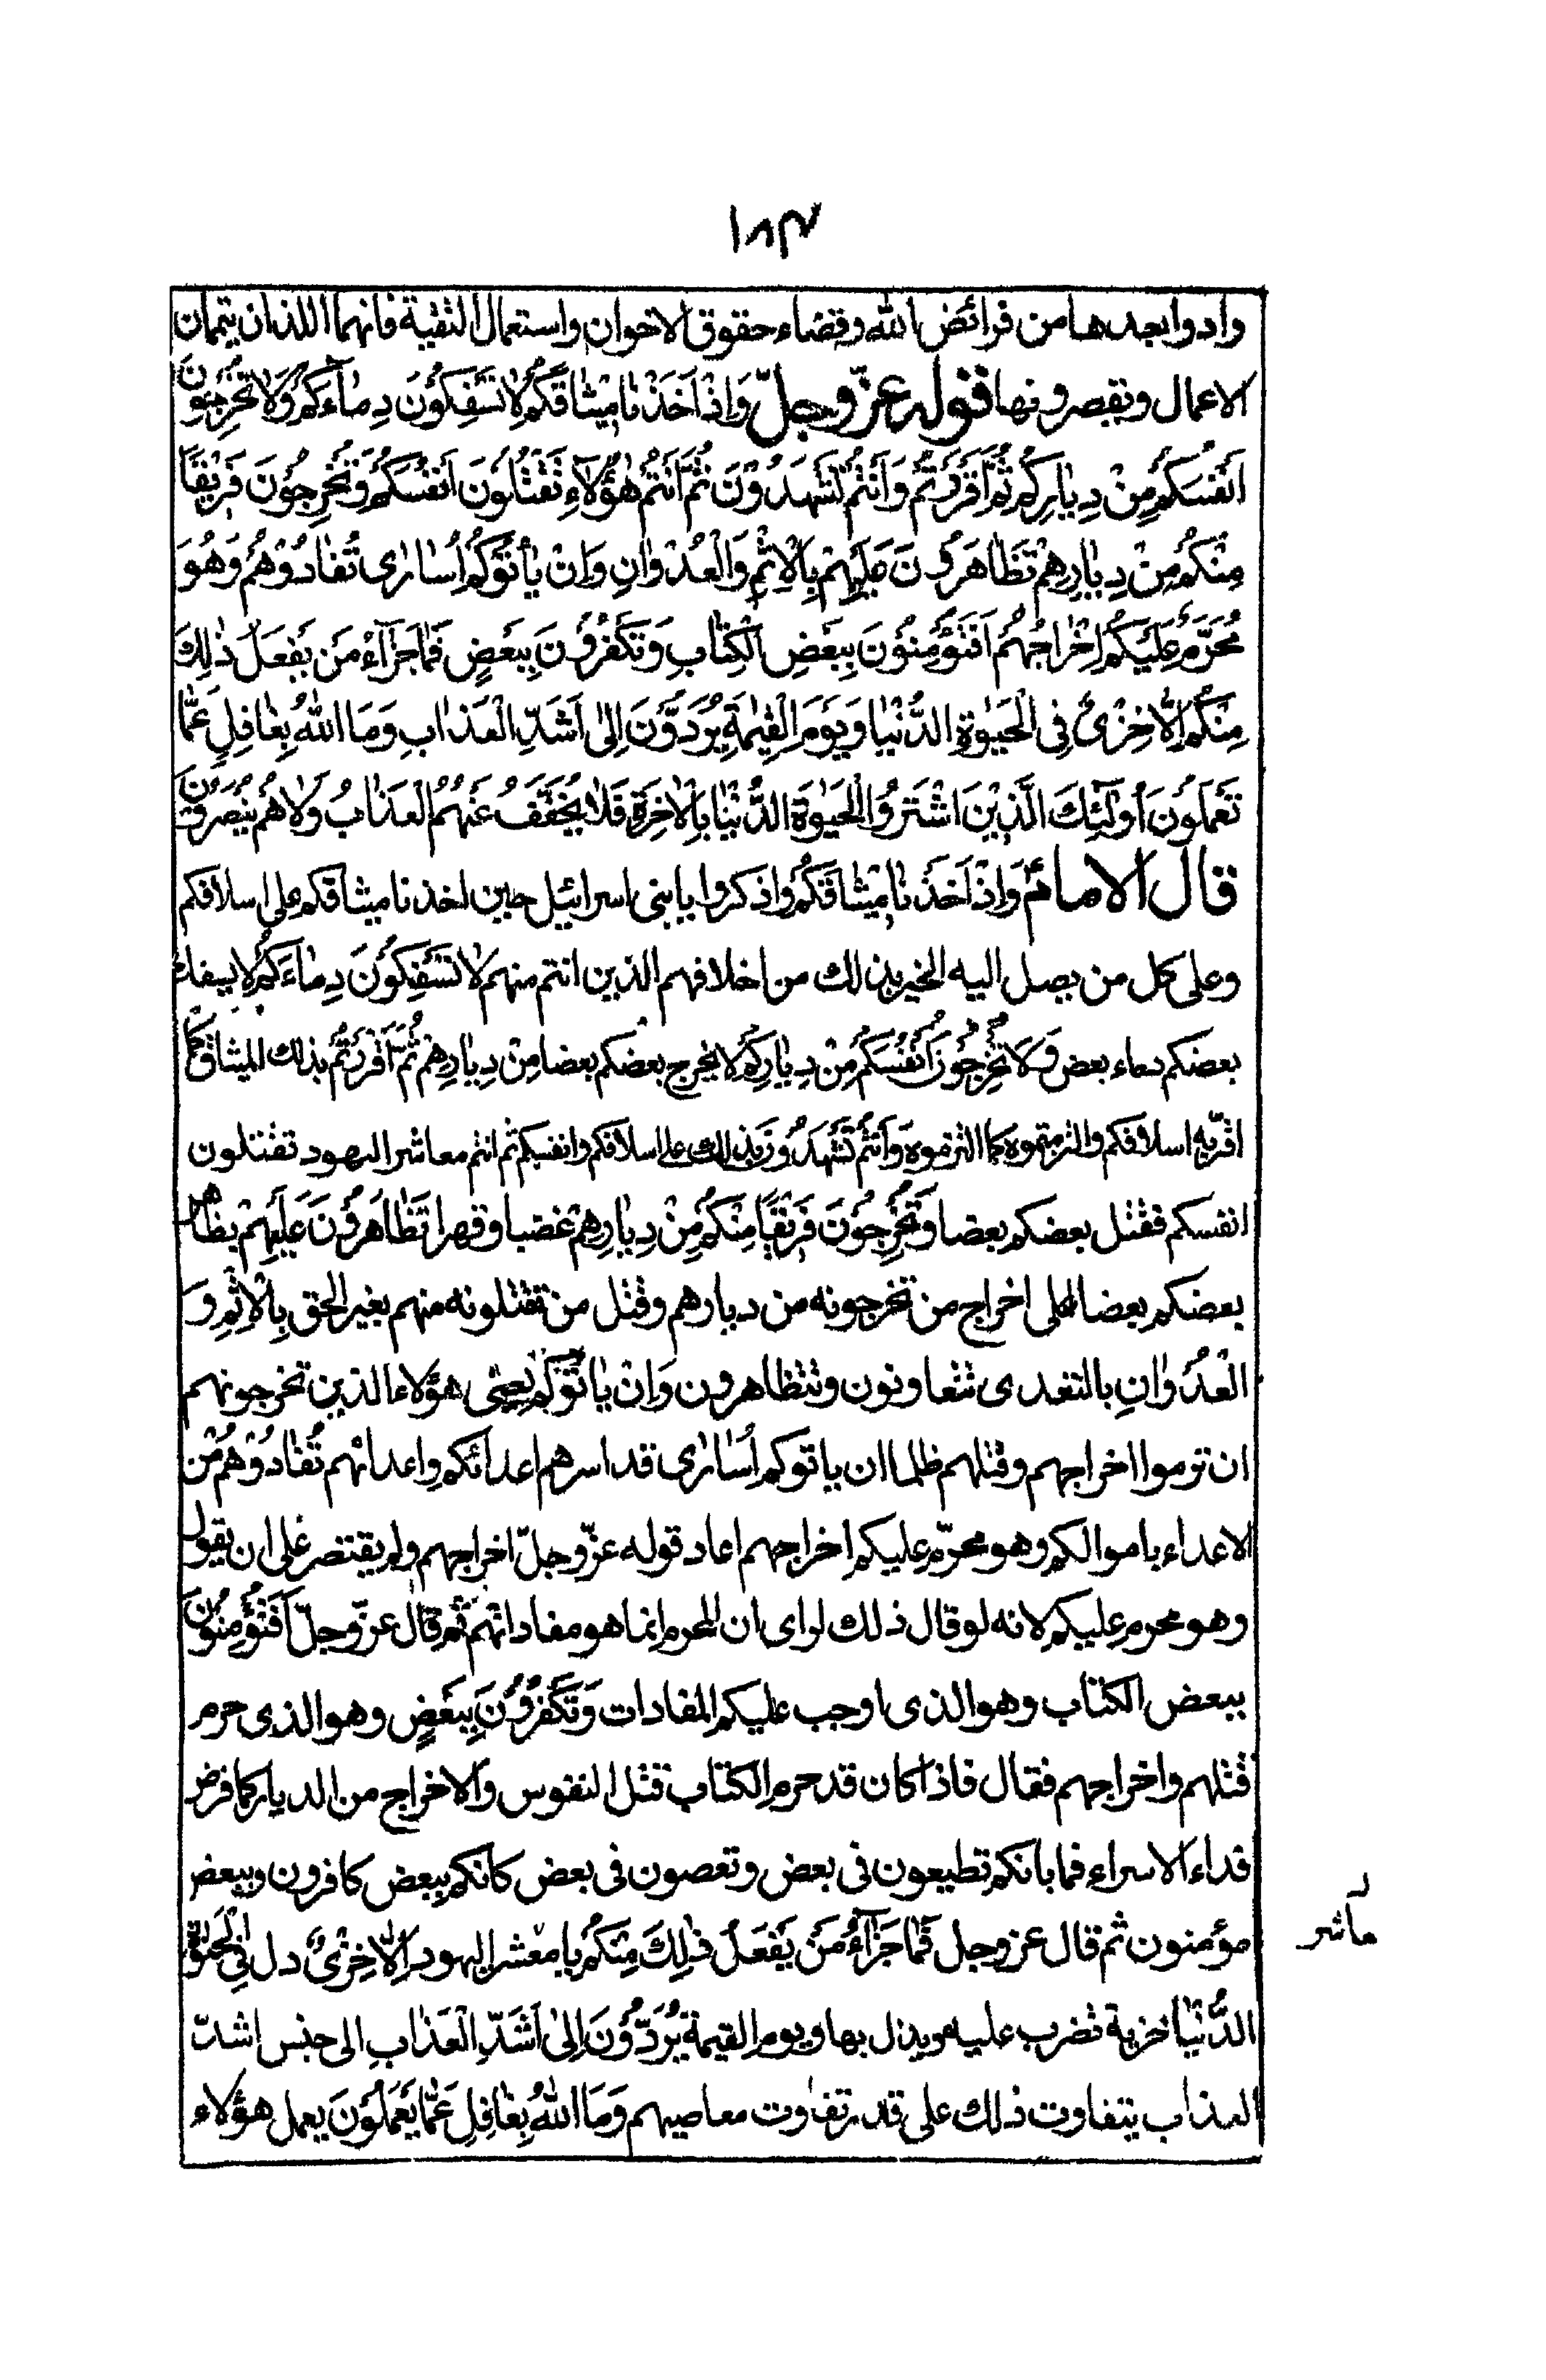 ١٨٣
وادوا بعدها من فرائض الله وقضاء حقوق الاخوان واستعمال التقية فانهما اللذان يتمان
الاعمال وتقصر ونها قوله عزّ وجلّ وَاِذْ اَخَذْنٰا مِيْثٰاقَكُمْ لٰا تَسْفِكُوْنَ دِمٰآءَكُمْ وَلٰا تُخْرِجُوْنَ
اَنْفُسَكُمْ مِنْ دِيٰارِكُمْ ثُمَّ اَقْرَرْتُمْ وَاَنْتُمْ تَشْهَدُوْنَ ثُمَّ اَنْتُمْ هٰؤُلٰآءِ تَقْتُلُوْنَ اَنْفُسَكُمْ وَتُخْرِجُوْنَ فَرِيْقًا
مِنْكُمْ مِنْ دِيٰارِهِمْ تَظٰاهَرُوْنَ عَلَيْهِمْ بِالْاِثْمِ وَالْعُدْوٰانِ وَاِنْ يَأْتُوْكُمْ اُسٰارٰى تُفٰادُوْهُمْ وَهُوَ
مُحَرَّمٌ عَلَيْكُمْ اِخْرٰاجُهُمْ اَفَتُؤْمِنُوْنَ بِبَعْضِ الْكِتٰابِ وَتَكْفُرُوْنَ بِبَعْضٍ فَمٰا جَزٰآءُ مَنْ يَفْعَلُ ذٰلِكَ
مِنْكُمْ اِلّٰا خِزْىٌ فِى الْحَيٰوةِ الدُّنْيٰا وَيَوْمَ الْقِيٰمَةِ يُرَدُّوْنَ اِلٰى اَشَدِّ الْعَذٰابِ وَمَا اللهُ بِغٰافِلٍ عَمّٰا
تَعْمَلُوْنَ اُولٰٓئِكَ الَّذِيْنَ اشْتَرَوُا الْحَيٰوةَ الدُّنْيٰا بِالْاٰخِرَةِ فَلٰا يُخَفَّفُ عَنْهُمُ الْعَذٰابُ وَلٰا هُمْ يُنْصَرُوْنَ
قال الامامؑ وَاِذْ اَخَذْنٰا مِيْثٰاقَكُمْ واذكروا يا بنى اسرائيل حين اخذنا ميثاقكم على اسلافكم
وعلى كل من يصل اليه الخبر بذلك من اخلافهم الذين انتم منهم لٰا تَسْفِكُوْنَ دِمٰاءَكُمْ لا يسفك
بعضكم دماء بعض وَلٰا تُخْرِجُوْنَ اَنْفُسَكُمْ مِنْ دِيٰارِكُمْ لا يخرج بعضكم بعضا مِنْ دِيٰارِهِمْ ثُمَّ اَقْرَرْتُمْ بذلك الميثاق كما
اقرّ به اسلافكم والتزمتموه كما التزموه وَاَنْتُمْ تَشْهَدُوْنَ بذلك على اسلافكم وانفسكم ثم انتم معاشر اليهود تقتلون
انفسكم فقتل بعضكم بعضا وَتُخْرِجُوْنَ فَرِيْقًا مِنْكُمْ مِنْ دِيٰارِهِمْ غضبا وقهرا تَظٰاهَرُوْنَ عَلَيْهِمْ يظاهر
بعضكم بعضا على اخراج من تخرجونه من ديارهم وقتل من تقتلونه منهم بغير الحق بِالْاِثْمِ وَ
الْعُدْوٰانِ بالتعدى تتعاونون وتتظاهرون وَاِنْ يٰأتُوْكُمْ يعنى هؤلاء الذين تخرجونهم
ان ترموا اخراجهم وقتلهم ظلما ان ياتوكم اُسٰارٰى قد اسرهم اعدائكم واعدائهم تُفٰادُوْهُمْ من
الاعداء باموالكم وهو محرّم عليكم اخراجهم اعاد قوله عزّ وجلّ اخراجهم ولم يقتصر على ان يقول
وهو محرم عليكم لانه لو قال ذلك لراى ان المحرم انما هو مفاداتهم ثم قال عزّ وجلّ اَفَتُؤْمِنُوْنَ
ببعض الكتاب وهو الذى اوجب عليكم المفادات وَتَكْفُرُوْنَ بِبَعْضٍ وهو الذى حرم
قتلهم واخراجهم فقال فاذا كان قد حرم الكتاب قتل النفوس والاخراج من الديار كما فرض
فداء الاسراء فما بالكم تطيعون فى بعض وتعصون فى بعض كانكم ببعض كافرون وببعض
مؤمنون ثم قال عز وجل فَمٰا جَزٰآءُ مَنْ يَفْعَلُ ذٰلِكَ مِنْكُمْ يا معشر اليهود اِلّٰا خِزْىٌ ذل فِى الْحَيٰوةِ
معاشر
الدُّنْيٰا خزية تضرب عليه ويذل بها ويوم القيمة يُرَدُّوْنَ اِلٰى اَشَدِّ الْعَذٰابِ الى جنس اشدّ
العذاب يتفاوت ذلك على قدر تفاوت معاصيهم وَمَا اللهُ بِغٰافِلٍ عَمّٰا يَعْمَلُوْنَ يعمل هؤلاء